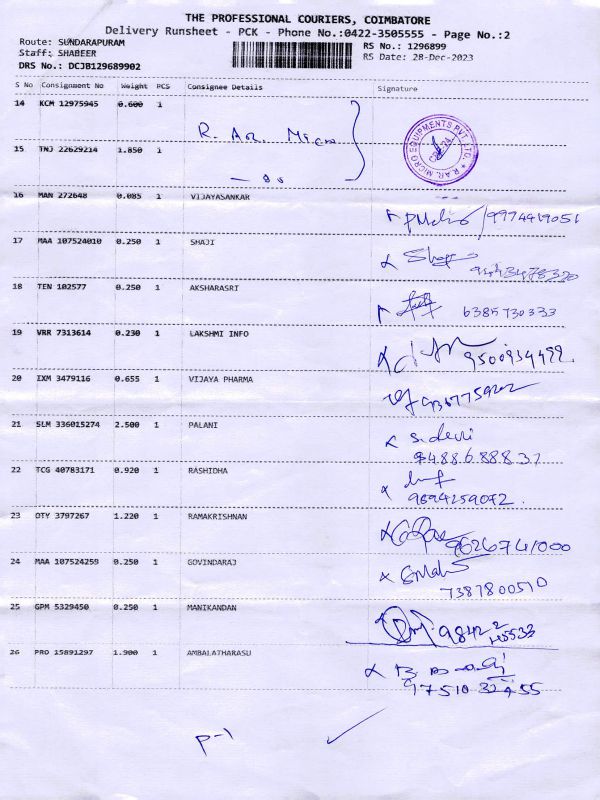 THE PROFESSIONAL COURIERS, COIMBATORE
Delivery Runsheet - PCK - Phone No.:0422-3505555 - Page No.:2
Route: SUNDARAPURAM
Staff: SHABEER
DRS No.: DCJB129689902
RS No.: 1296899
RS Date: 28-Dec-2023
S No Consignment No Weight PCS Consignee Details Signature
14 KCM 12975945 0.600 1
R. AR. Micro
15 TNJ 22629214 1.850 1
EQUIPMENTS PVT. LTD. ★ R.AR. MICRO
16 MAN 272648 0.085 1 VIJAYASANKAR
9974419051
17 MAA 107524010 0.250 1 SHAJI
18 TEN 102577 0.250 1 AKSHARASRI
6385730333
19 VRR 7313614 0.230 1 LAKSHMI INFO
9500934499
20 IXM 3479116 0.655 1 VIJAYA PHARMA
21 SLM 336015274 2.500 1 PALANI
S. devi
94886 888 37
22 TCG 40783171 0.920 1 RASHIDHA
9894259072
23 OTY 3797267 1.220 1 RAMAKRISHNAN
9626741000
24 MAA 107524259 0.250 1 GOVINDARAJ
7387800570
25 GPM 5329450 0.250 1 MANIKANDAN
26 PRO 15891297 1.900 1 AMBALATHARASU
P-1